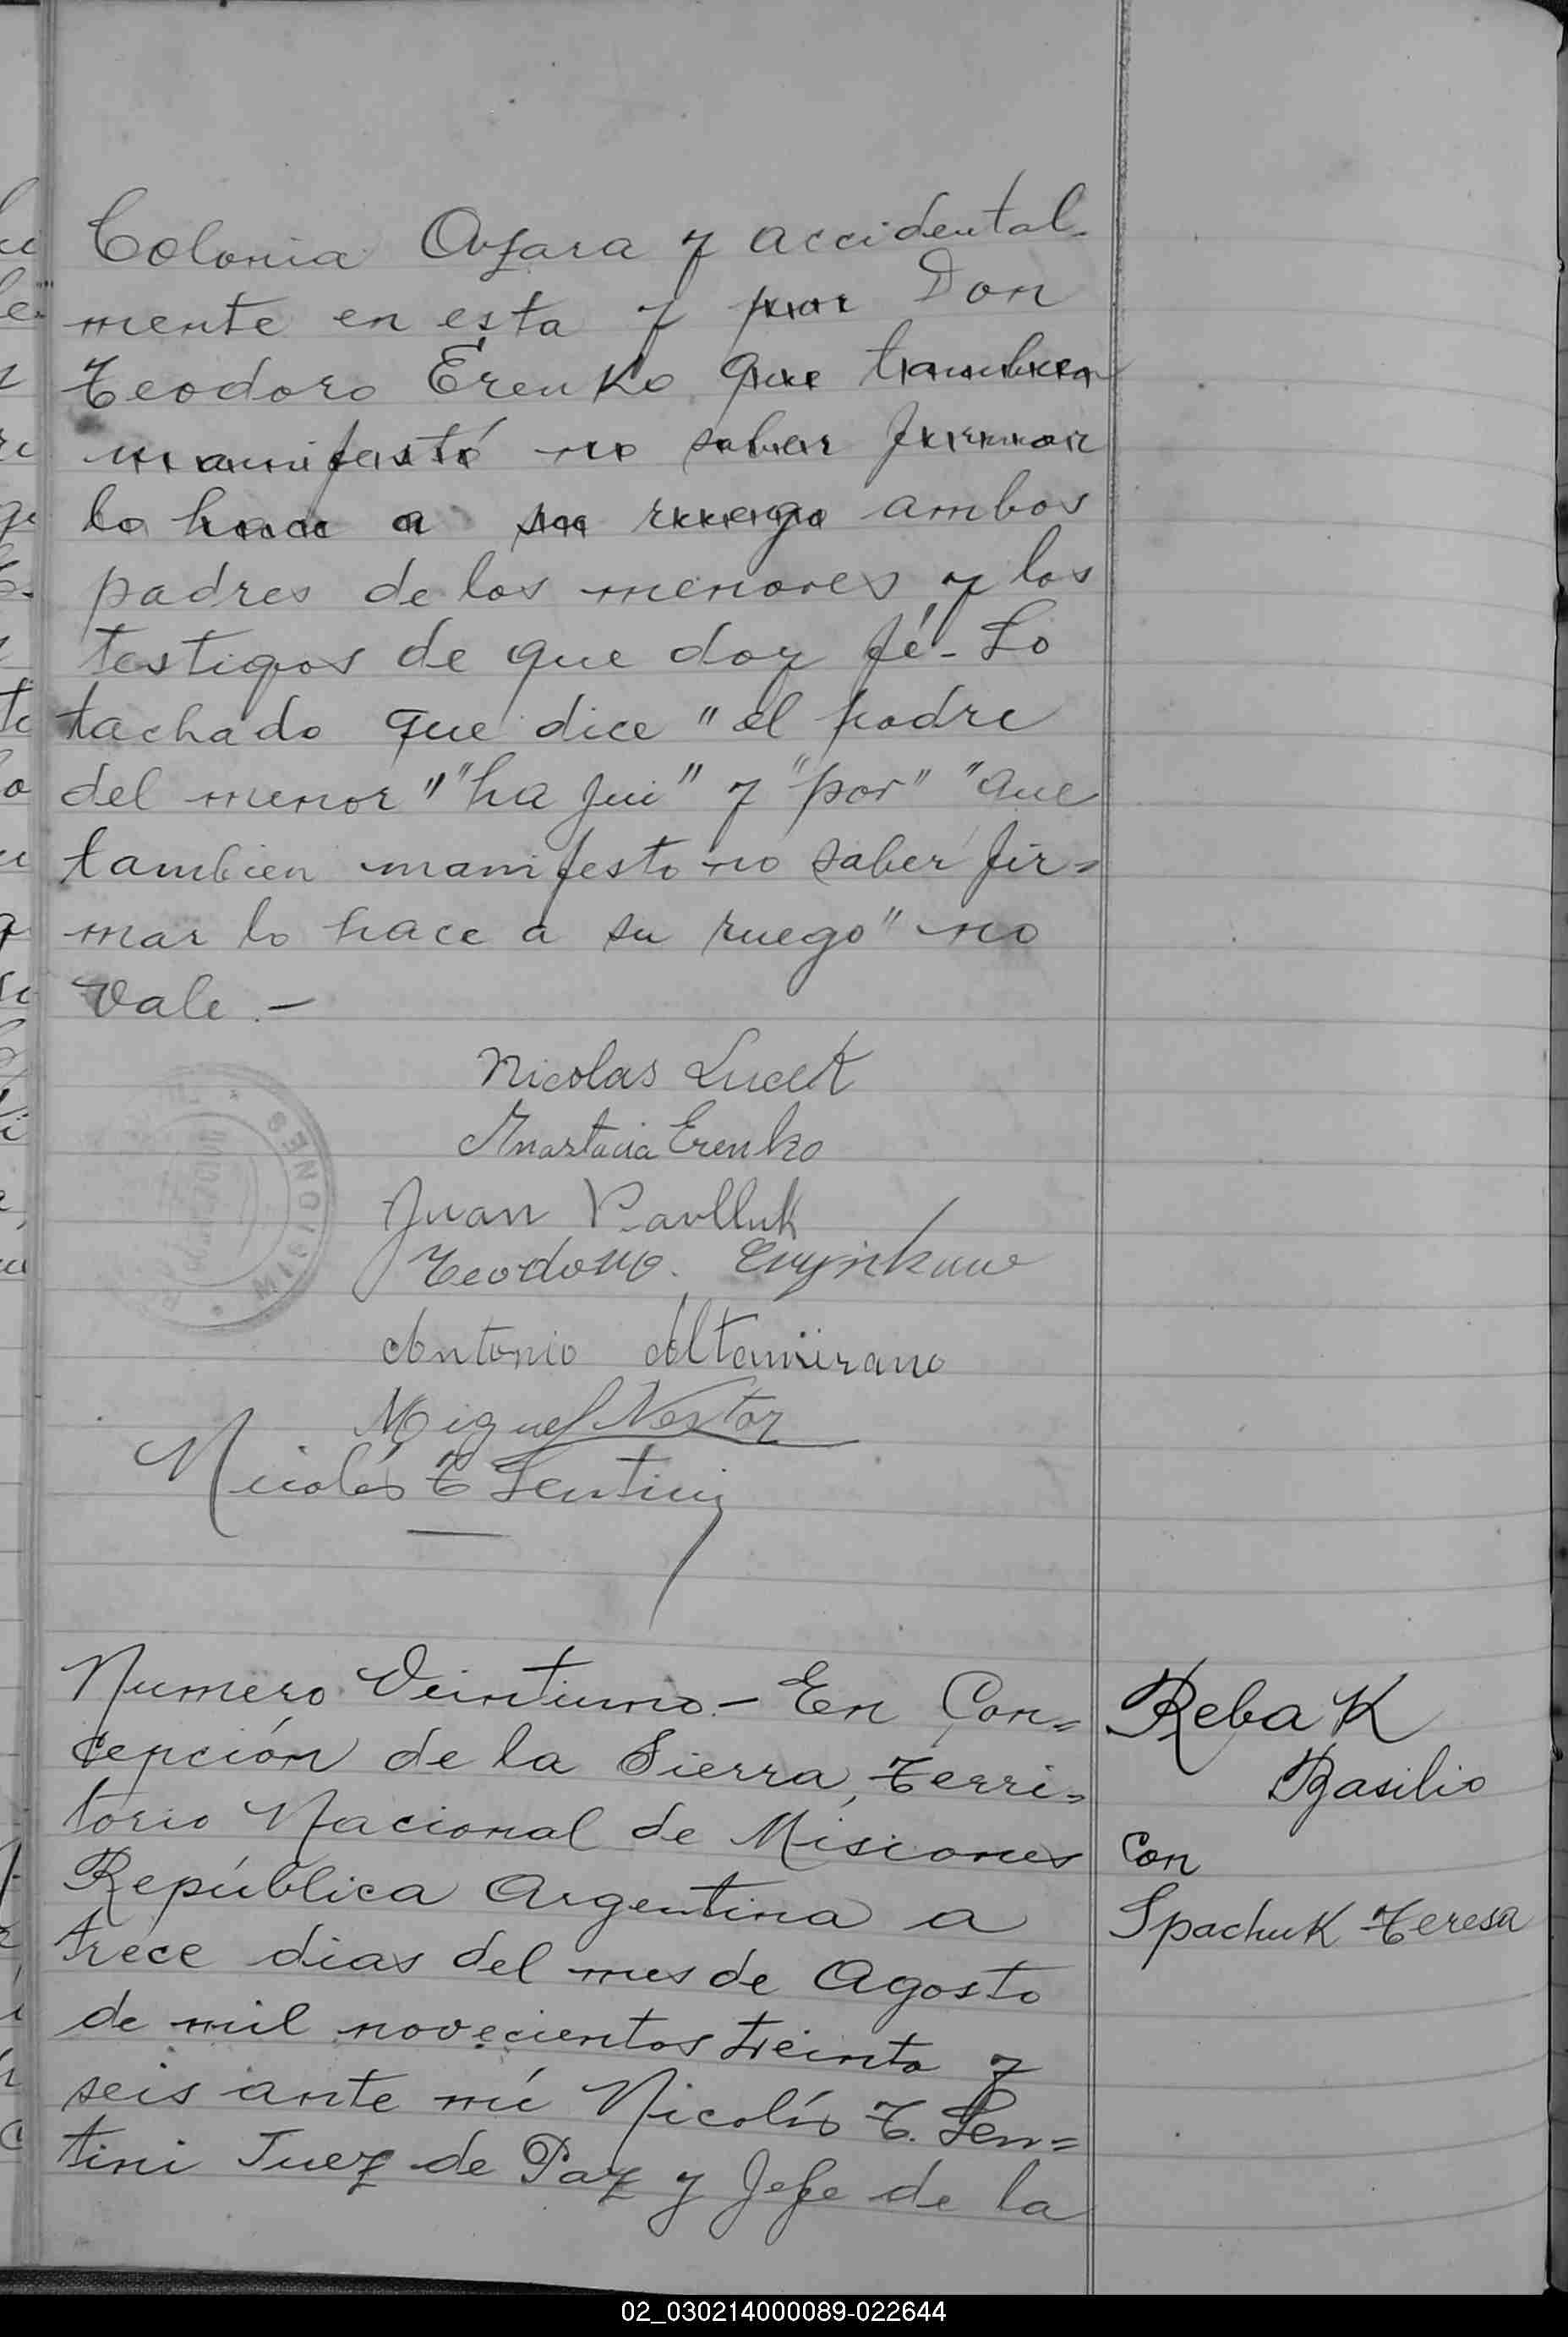 Colonia Azara y accidental-
mente en esta y por Don
Teodoro Erenko que tambien
manifestó no saber firmar
lo hace a su ruego ambos
padres de los menores y los
testigos de que doy fé - Lo
tachado que dice "el padre
del menor" "ha fui" y "por" "que
tambien manifesto no saber fir=
mar lo hace a su ruego" no
Vale. -
Nicolas Lucek
Anastacia Erenko
Juan Pavlluk
Teodoro
Antonio Altamirano
Miguel Nestor
Nicolás T Sentini
MISIONES
Numero Veintiuno - En Con=
cepción de la Sierra, Terri=
torio Nacional de Misiones
República Argentina a
trece dias del mes de Agosto
de mil novecientos treinta y
seis ante mi Nicolás T. Sen=
tini Juez de Paz y Jefe de la
Rebak
Basilio
Con
Spachuk Teresa
02_030214000089-022644